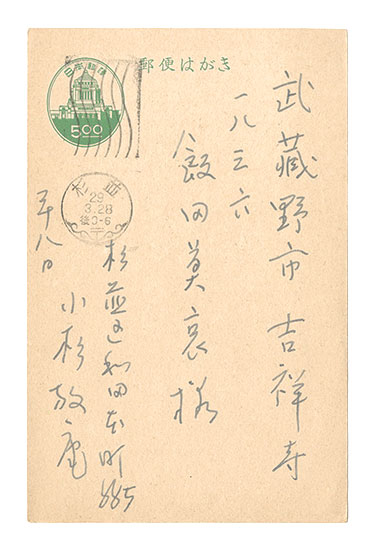 日本郵便
500
郵便はがき
武蔵野市吉祥寺
一八三六
飯田莫哀様
杉並
29
3.28
後0-6
杉並区和田本町885
小杉放庵
廿八日